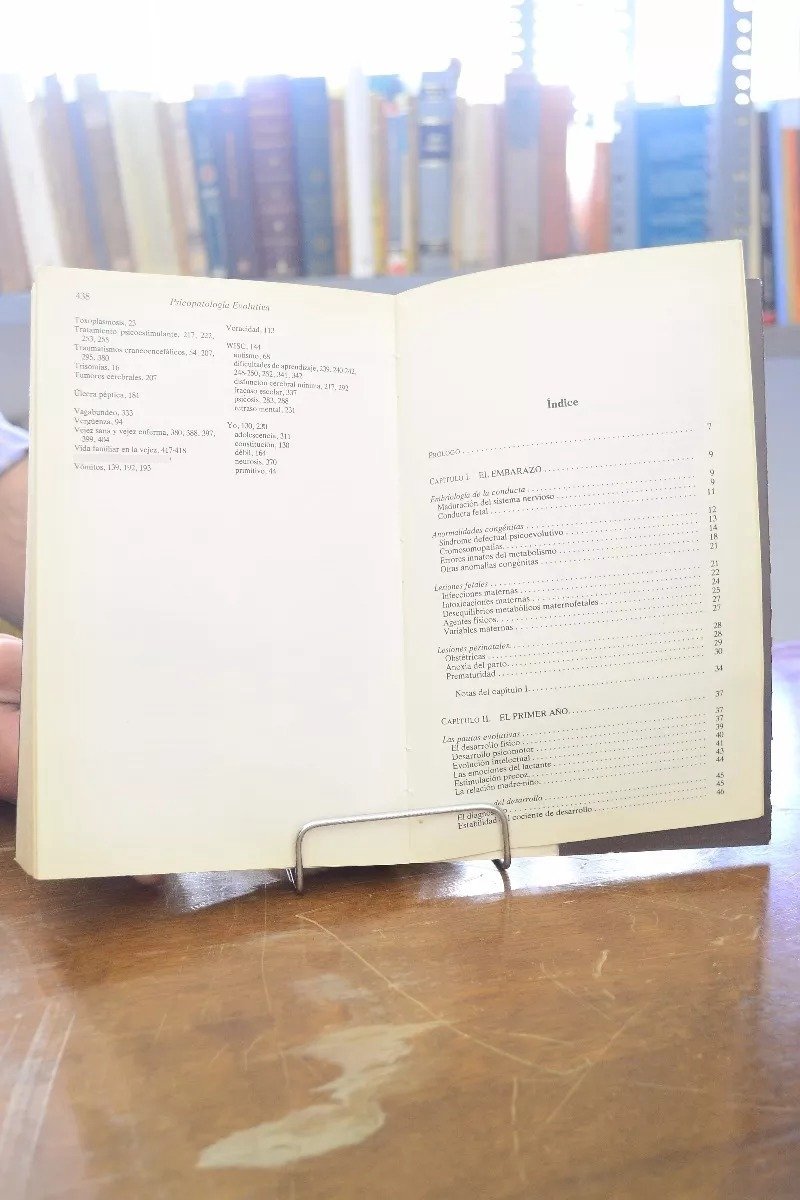 438
Psicopatología Evolutiva
Toxoplasmosis, 23
Tratamiento psicoestimulante, 217, 222,
253, 255
Traumatismos craneoencefálicos, 54, 207,
295, 380
Trisomías, 16
Tumores cerebrales, 207
Úlcera péptica, 181
Vagabundeo, 333
Vergüenza, 94
Vejez sana y vejez enferma, 380, 388, 397,
399, 404
Vida familiar en la vejez, 417-418
Vómitos, 139, 192, 193
Veracidad, 113
WISC, 144
autismo, 68
dificultades de aprendizaje, 239, 240-242,
248-250, 252, 341, 342
disfunción cerebral mínima, 217, 292
fracaso escolar, 337
psicosis, 283, 288
retraso mental, 231
Yo, 130,
adolescencia, 311
constitución, 130
débil, 164
neurosis, 270
primitivo, 44
Índice
PRÓLOGO 7
CAPÍTULO I. EL EMBARAZO 9
Embriología de la conducta 9
Maduración del sistema nervioso 9
Conducta fetal 11
Anormalidades congénitas 12
Síndrome defectual psicoevolutivo 13
Cromosomopatías 14
Errores innatos del metabolismo 18
Otras anomalías congénitas 21
Lesiones fetales 21
Infecciones maternas 22
Intoxicaciones maternas 24
Desequilibrios metabólicos maternofetales 25
Agentes físicos 27
Variables maternas 27
Lesiones perinatales 28
Obstétricas 28
Anoxia del parto 29
Prematuridad 30
Notas del capítulo I 34
CAPÍTULO II. EL PRIMER AÑO 37
Las pautas evolutivas 37
El desarrollo físico 37
Desarrollo psicomotor 39
Evolución intelectual 40
Las emociones del lactante 41
Estimulación precoz 43
La relación madre-niño 44
del desarrollo 45
El 45
Estabilidad del cociente de desarrollo 46